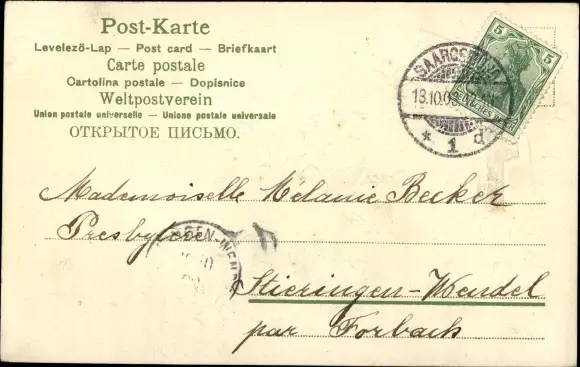 Post-Karte
Levelező-Lap — Post card — Briefkaart
Carte postale
Cartolina postale — Dopisnice
Weltpostverein
Union postale universelle — Unione postale universale
ОТКРЫТОЕ ПИСЬМО.
5 5
13.10.03
* 1 d
Mademoiselle Mélanie Becker
Presbytère
Stieringen-Wendel
par Forbach